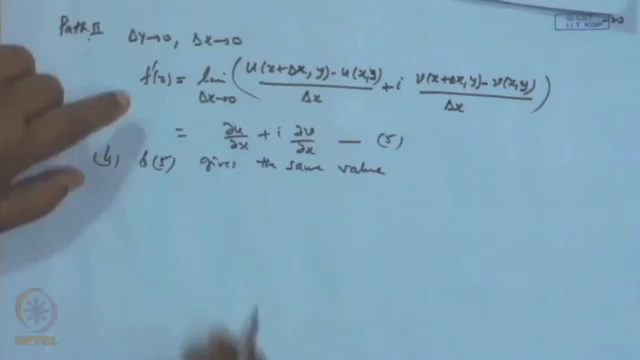 Path II Δy→0, Δx→0
f'(z) = lim Δx→0 ( u(x+Δx, y) - u(x,y) / Δx + i v(x+Δx, y) - v(x,y) / Δx )
= ∂u/∂x + i ∂v/∂x — (5)
(4) & (5) gives the same value
NPTEL